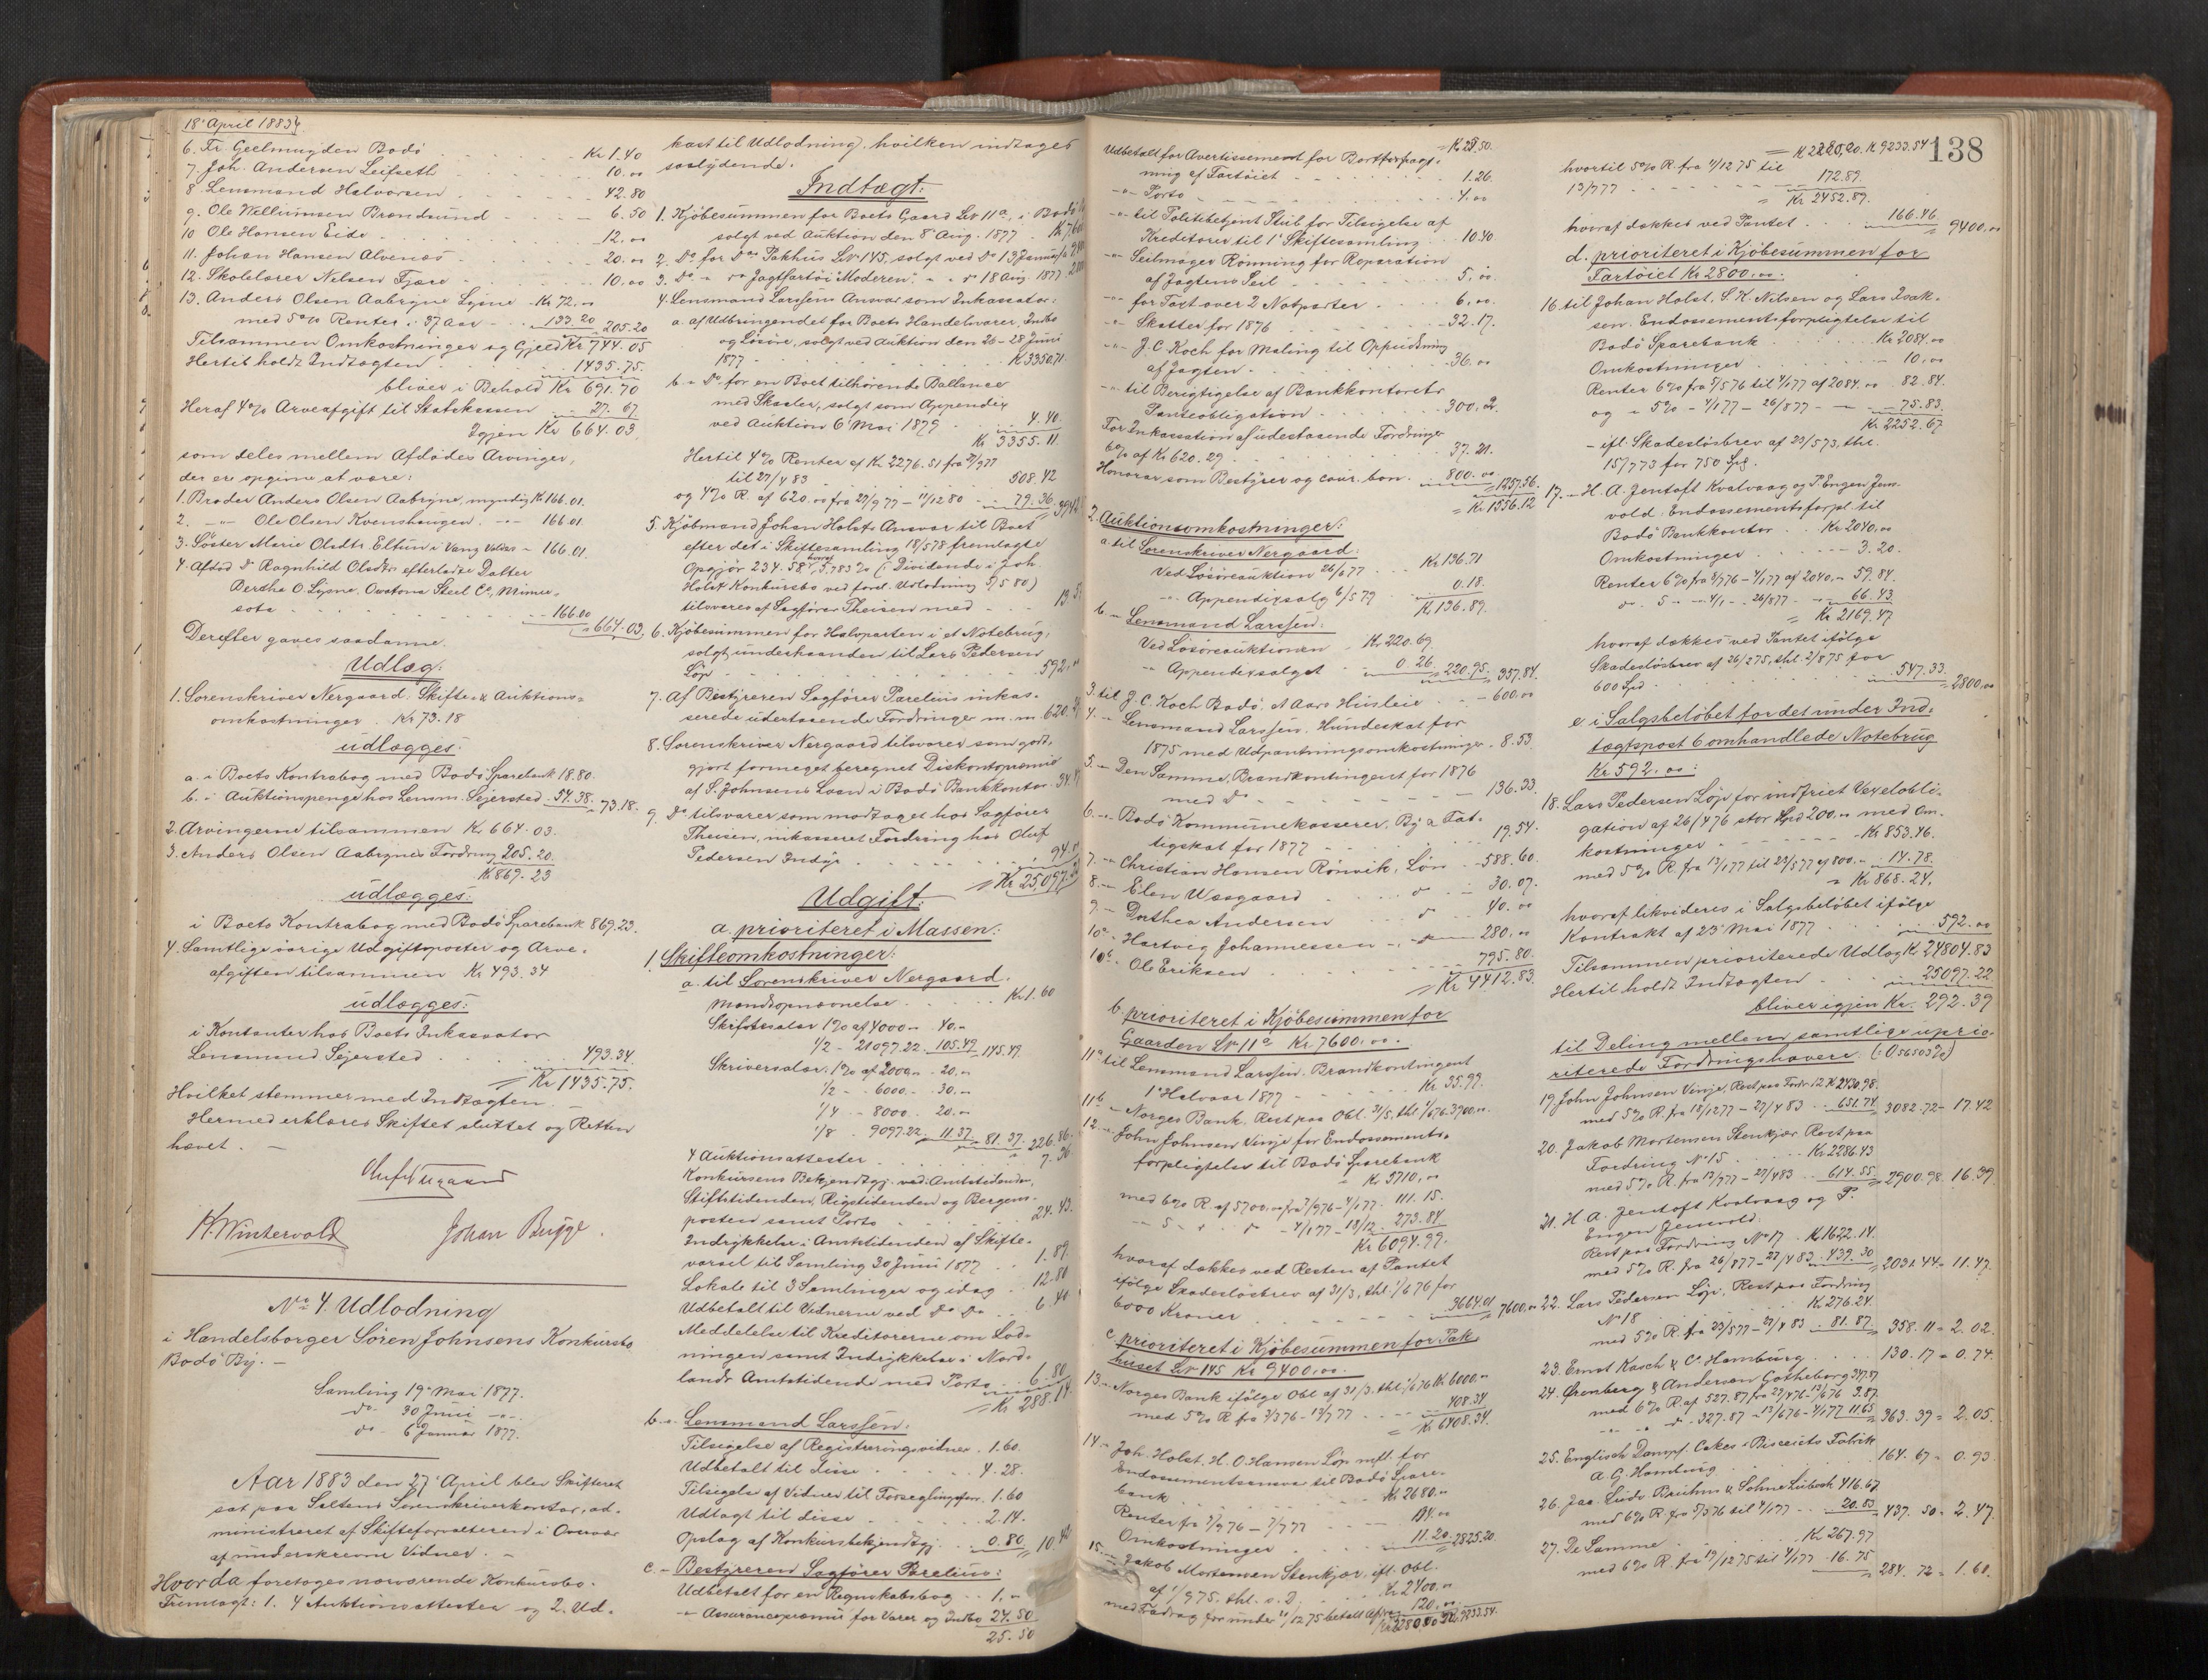 18' April 1883
6. Fr. Geelmuyden Bodö Kr 1.40
7. Joh. Andersen Leifseth 10.00
8. Lensmand Halvorsen 42.80
9. Ole Wellumsen Brandsund 6.50
10 Ole Hansen Eide 12.00
11. Johan Hansen Alvenæs 20.00
12. Skolelærer Nelsen Fjære 10.00
13. Anders Olsen Aabryne Lysne Kr 72.00
med 5% Renter i 37 Aar 133.20 205.20
Tilsammen Omkostninger og Gjæld Kr 744.05
Hertil holdt Indtægten 1435.75
bliver i Behold Kr 691.70
Heraf 4% Arveafgift til Statskassen 27.67
Igjen Kr 664.03
som deles mellem Afdødes Arvinger,
der er opgivne at være:
1. Broder Anders Olsen Aabryne, myndig Kr 166.01
2. -"- Ole Olsen Kvenshaugen -"- 166.01
3. Söster Marie Olsdtr Eltun i Vang Valders - 166.01
4. Afdöd d° Ragnhild Olsdtr efterladte Datter
Berthe O. Lysne, Owatona Steel C°, Minne-
sota 166.00
664.03
Derefter gaves saadanne
Udlæg:
1. Sorenskriver Nergaard, Skifte- & Auktions-
omkostninger Kr 73.18
udlægges:
a. i Boets Kontrabog med Bodö Sparebank 18.80
b. i Auktionspenge hos Lensm. Sejersted 54.38 73.18
2. Arvingerne tilsammen Kr 664.03
3. Anders Olsen Aabrynes Fordring 205.20
Kr 869.23
udlægges:
i Boets Kontrabog med Bodö Sparebank 869.23
4. Samtlige övrige Udgiftsposter og Arve-
afgiften tilsammen Kr 493.34
udlægges:
i Kontanter hos Boets Inkassator
Lensmand Sejersted 493.34
Kr 1435.75
Hvilket stemmer med Indtægten.
Hermed erklæres Skiftet sluttet og Retten
hævet. -
K. Wintervold Johan Bugge
No 4. Udlodning
i Handelsborger Sören Johnsens Konkursbo
Bodö By. -
Samling 19' Mai 1877.
do - 30 Juni -"-
do - 6 Januar 1877.
Aar 1883 den 27' April blev Skifteret
sat paa Saltens Sorenskriverkontor, ad-
ministreret af Skifteforvalteren i Overvær
af underskrevne Vidner. -
Hvor da foretoges nærværende Konkursbo.
Fremlagt: 1. 4 Auktionsattester og 2. Ud-
kast til Udlodning, hvilken indtages
saalydende:
Indtægt:
1. Kjöbesummen for Boets Gaard Lr 11a, i Bodö
solgt ved Auktion den 8' Aug. 1877
2. Do for Do Pakhus Lr 145, solgt ved Do 13 Januar
3. Do - Do Jagtfartöi "Moderen" - - Do 18 Aug 1877
4. Lensmand Larssens Ansvar som Inkassator:
a. af Udbringendet for Boets Handelvarer, Indbo
og Lösöre, solgt ved Auktion den 26-28 Juni
1877 Kr 3350.71
b - Do for en Boet tilhörende Ballance
med Skaaler, solgt som Appendix
ved Auktion 6' Mai 1879 4.40
Kr 3355.11
Hertil 4% Renter af Kr 2276.51 fra
til 27/4 83 508.42
og 4% R. af 620.00 fra 27/9 77 - 11/12 80 79.36
5. Kjöbmand Johan Holsts Ansvar til Boet
efter det i Skiftesamling 18/5 78 fremlagte
Opgjör 234.58, hvoraf 5,783% (: Dividende i Joh.
Holst Konkursbo ved foret. Udlodning 5/5 80)
tilsvares af Sagförer Theisen med
6. Kjöbesummen for Halvparten i et Notebrug,
solgt underhaanden til Lars Pedersen
Löp 592.00
7. Af Bestyreren Sagförer Parelius inkas-
serede udestaaende Fordringer m.m
8. Sorenskriver Nergaard tilsvarer som godt-
gjort formeget beregnet Diskontopræmie
af S. Johnsens Laan i Bodö Bankkontor
9. Do tilsvarer som modtaget hos Sagförer
Theisen, inkasseret Fordring hos Oluf
Pedersen Indyr
Kr 25097.22
Udgift:
a. prioriteret i Massen:
1. Skifteomkostninger:
a. til Sorenskriver Nergaard.
Mandsopnævnelse Kr 1.60
Skiftesalær 1% af 4000 - 40.-
1/2 - 21097.22 105.49 145.49
Skriversalær: 1% af 2000 - 20.-
1/2 - 6000 - 30.-
1/4 - 8000 - 20.-
1/8 - 9097.22 11.37 81.37 226.86
4 Auktionsattester 7.36
Konkursens Bekjendtgj. ved: Amtstidenden,
Stiftstidenden, Rigstidenden og Bergens-
posten samt Porto 24.43
Indrykkelse i Amtstidenden af Skifte-
varsel til Samling 30 Juni 1877 1.89
Lokale til 3 Samlinger og idag 12.80
Udbetalt til Vidnerne ved Do Do 6.40
Meddelelse til Kreditorerne om Lod-
ningen samt Indrykkelse i Nord-
lands Amtstidende med Porto 6.80
Kr 288.14
b. - Lensmand Larssen:
Tilsigelse af Registreringsvidner 1.60
Udbetalt til disse 4.28
Tilsigelse af Vidner til Forseglingsforr. 1.60
Udlagt til disse 2.14
Opslag af Konkursbekjendtgj. 0.80 10.42
c. - Bestyreren Sagförer Parelius:
Udbetalt for en Regnskabsbog 1.-
-"- Assurancepræmie for Varer og Indbo 24.50
25.50
138
Udbetalt for Avertissement for Bortforfragt-
ning af Fartöiet 1.26
-"- Porto 4.00
-"- til Politibetjent Stub for Tilsigelse af
Kreditorer til 1' Skiftesamling 10.40
-"- Seilmager Rönning for Reparation
af Jagtens Seil 5.00
-"- for Toxt over 2 Notparter 6.00
-"- Skatter for 1876 32.17
-"- J. C Koch for Maling til Oppudsning
af Jagten 36.00
-"- til Berigtigelse af Bankkontorets
Panteobligation 300.
For Inkassation af udestaaende Fordringer
6% af Kr 620.29 37.21
Honorar som Bestyrer og cour. bon. 800.00 1257.56
Kr 1556.12
2. Auktionsomkostninger:
a. til Sorenskriver Nergaard:
Ved Lösöreauktion 26/6 77 Kr 136.71
-"- Appendixsalg 6/5 79 0.18
Kr 136.89
b - Lensmand Larssen:
Ved Lösöreauktionen Kr 220.69
-"- Appendixsalget 0.26 220.95 357.84
3. til J. C. Koch Bodö, et Aars Husleie 600.00
4. - Lensmand Larssen, Hundeskat for
1875 med Udpantningsomkostninger 8.53
5. - Den Samme, Brandkontingent for 1876
med Do 136.33
6. - Bodö Kommunekasserer, By & Fat-
tigskat for 1877 19.54
7. - Christian Hansen Rönvik, Lön 588.60
8. - Elen Waagaard 30.07
9. - Dorthea Andersen 40.00
10a - Hartvig Johannessen 280.00
10b Ole Eriksen 795.80
Kr 4412.83
b. prioriteret i Kjöbesummen for
Gaarden Lr 11a Kr 7600.00.
11a til Lensmand Larssen, Brandkontingent
1' Halvaar 1877 Kr 35.99
11b - Norges Bank, Rest paa Obl. 31/5, thl. 1/6 76 3900.00
12 - John Johnsen Vinje for Endossements-
forpligtelse til Bodö Sparebank
Kr 5710.00
med 6% R. af 5700.00 fra 7/9 76 - 4/1 77 111.15
- 5 - - - 4/1 77 - 18/12 273.84
Kr 6094.99
hvoraf dækkes ved Resten af Pantet
ifölge Skadeslösbrev af 31/3, thl. 1/6 76 for
6000 Kroner 3664.01 7600.00
c. prioriteret i Kjöbesummen for Pak-
huset Lr 145 Kr 9400.00.
13 - Norges Bank ifölge Obl. af 31/3, thl. 1/6 76 Kr 6000.00
med 5% R fra 3/3 76 - 13/7 77 408.34
Kr 6408.34
14 - Joh. Holst, H. O. Hansen Löp mfl. for
Endossementsansvar til Bodö Spare-
bank Kr 2680.00
Renter fra 7/9 76 - 7/7 77 134.00
Omkostninger 11.20 2825.20
15 - Jakob Mortensen Stenkjær, ifl. Obl.
af 1/9 75, thl. s. D. Kr 2400.00
med Fradrag for under 11/12 75 betalt Afdrag 120.00
Kr 2280.00 Kr 9233.54
Kr 2280.00. Kr 9233.54
hvortil 5% R. fra 11/12 75 til
13/7 77 172.89
Kr 2452.89
hvoraf dækkes ved Pantet 166.46 9400.00
d. prioriteret i Kjöbesummen for
Fartöiet Kr 2800.00:
16 til Johan Holst, S. K. Nilsen og Lars Isak-
sen, Endossementsforpligtelse til
Bodö Sparebank Kr 2084.00
Omkostninger 10.00
Renter 6% fra 5/5 76 til 4/1 77 af 2084.00 82.84
og - 5% - 4/1 77 - 26/8 77 75.83
Kr 2252.67
- ifl. Skadeslösbrev af 23/5 73, thl.
15/7 73 for 750 Spd.
17. - H. A. Jentoft Kvalvaag og P. Engen Jem-
vold: Endossementsforpl. til
Bodö Bankkontor Kr 2040.00
Omkostninger 3.20
Renter 6% fra 8/7 76 - 4/1 77 af 2040.00 59.84
do. 5 - - 4/1 - 26/8 77 66.43
Kr 2169.47
hvoraf dækkes ved Pantet ifölge
Skadeslösbrev af 26/2 75, thl. 2/8 75 for
600 Spd 547.33 2800.00
e i Salgsbelöbet for det under Ind-
tægtspost 6 omhandlede Notebrug
Kr 592.00:
18. Lars Pedersen Löp for indfriet Vexelobli-
gation af 26/4 76 stor Spd 200.00 med Om-
kostninger Kr 853.46
med 5% R. fra 13/1 77 til 23/5 77 af 800.00 14.78
Kr 868.24
hvoraf likvideres i Salgsbelöbet ifölge
Kontrakt af 23' Mai 1877 592.00
Tilsammen prioriterede Udlæg Kr 24804.83
Hertil holdt Indtægten 25097.22
bliver igjen Kr. 292.39
til Deling mellem samtlige uprio-
riterede Fordringshavere. (: 0.56505%)
19 John Johnsen Vinje, Rest paa Fordr. 12 Kr 2430.98
med 5% R. fra 18/12 77 - 27/4 83 651.74 3082.72 - 17.42
20. Jakob Mortensen Stenkjær Rest paa
Fordring No 15 Kr 2286.43
med 5% R. fra 13/7 77 - 27/4 83 614.55 2900.98 16.39
21. H. A. Jentoft Kvalvaag og P.
Engen Jemvold:
Rest paa Fordring No 17 Kr 1622.14
med 5% R. fra 26/8 77 - 27/4 83 439.30 2031.44 - 11.47
22. Lars Pedersen Löp, Rest paa Fordring
No 18 Kr 276.24
med 5% R. fra 23/5 77 - 27/4 83 81.87 358.11 - 2.02
23. Ernst Kasch & Co Hamburg 130.17 - 0.74
24. Ørenberg & Andersen Gotheborg
med 6% R. af 527.87 fra
do. 327.87 - 13/6 76 - 4/1 77 11.65 363.39 - 2.05
25. Englisch Dampf. Cakes & Biscuits Fabrik
A. G. Hamburg 164.67 - 0.93
26. Joa. Ludv. Bruhns & Sohne Lübech 416.67
med 6% R. fra 5/3 76 til 4/1 77 20.83 437.50 - 2.47
27. De Samme Kr 267.97
med 6% R. fra 19/12 75 til 4/1 77 16.75 284.72 - 1.60